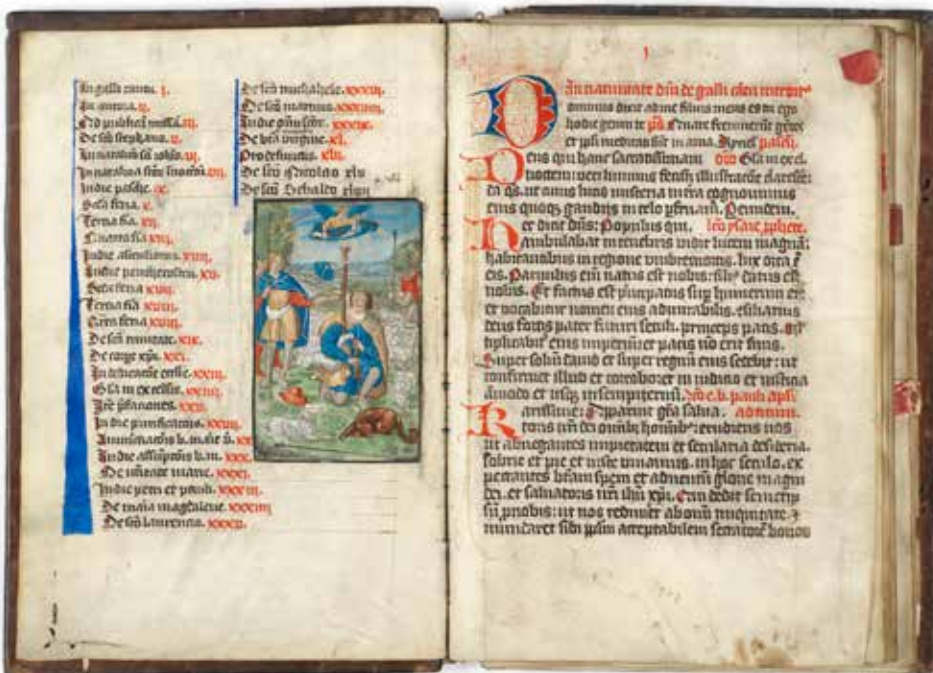 In galli cantu. i.
In aurora. ii.
Ad publicā missā. iii.
De scō stephano. v.
In natali sci iohis. vi.
In natali scōr īnocētū. vii.
In die pasche. ix.
Scda feria. x.
Tertia fīa. xii.
Quarta fīa xiii.
In die ascensionis. xiiii.
In die penthecostes. xv.
Scda feria xvii.
Tertia fīa xviii.
Qrta feria xviii.
De scā trinitate. xix.
De corpe xpi. xxi.
In dedicatōe ecclie. xxiii.
Glia in excelsis. xxiiii.
Itē p̄faciones. xxv.
In die purificatōis. xxviii.
Annunciatōis b. marie v. xx
In die assūptōis b. m. xxx.
De uītate marie. xxxi.
In die petri et pauli. xxxiii.
De maria magdalene. xxxiiii
De scō laurencio. xxxv.
De scō michahele. xxxvii.
De scō martino. xxxviii.
In die oīm scōr. xxxix.
De btā virgine. xl.
Pro defunctis. xlii.
De scō Nicolao xlv
De scō Sebaldo xlvii
i
In natiuitate dni de galli cātu introit⁹
Dominus dixit ad me filius meus es tu ego
hodie genui te p̄s. Quare fremuerūt gētes
et ppli meditati sūt inania. Kyriel pascħ.
Deus qui hanc sacratissimam orō Glia in excel
noctem: veri luminis fecisti illustratōe clarescē:
da q̄s. ut cuius lucis misteria in tr̄a cognouimus
eius quoq; gaudijs in celo pfruam̄. Qui tecum.
Hec dicit dn̄s: Populus qui. lcō ysaie pphete.
ambulabat in tenebris vidit lucem magnā:
habitantibus in regione vmbre mortis. lux orta ē
eis. Paruulus eīm natus est nobis: fili⁹ datus est
nobis. Et factus est pncipatus sup humerum ei⁹
et vocabitur nomen eius admirabilis. cōsiliarius
deus fortis pater futuri seculi. princeps pacis. Ml
tiplicabit̄ eius imperiū et pacis nō erit finis.
Super soliū dauid et super regnū eius sedebit: ut
confirmet illud et corroboret in iudicio et iusticia
amodo et usq; in sempiternū. Lcō e. b. pauli apli
Karissime: Apparuit grā salua. ad titum.
toris nr̄i dei omīb; homīb⁹: erudiens nos
ut abnegantes impietatem et secularia desideria.
sobrie et pie et iuste viuamus. in hoc seculo. ex
pectantes btām spem et aduentū glorie magni
dei. et saluatoris nr̄i ihū xpi. Qui dedit semetip
sū pro nobis: ut nos redimeret ab omī iniquitate. ⁊
mundaret sibi pplm acceptabilem sectatorē bonor